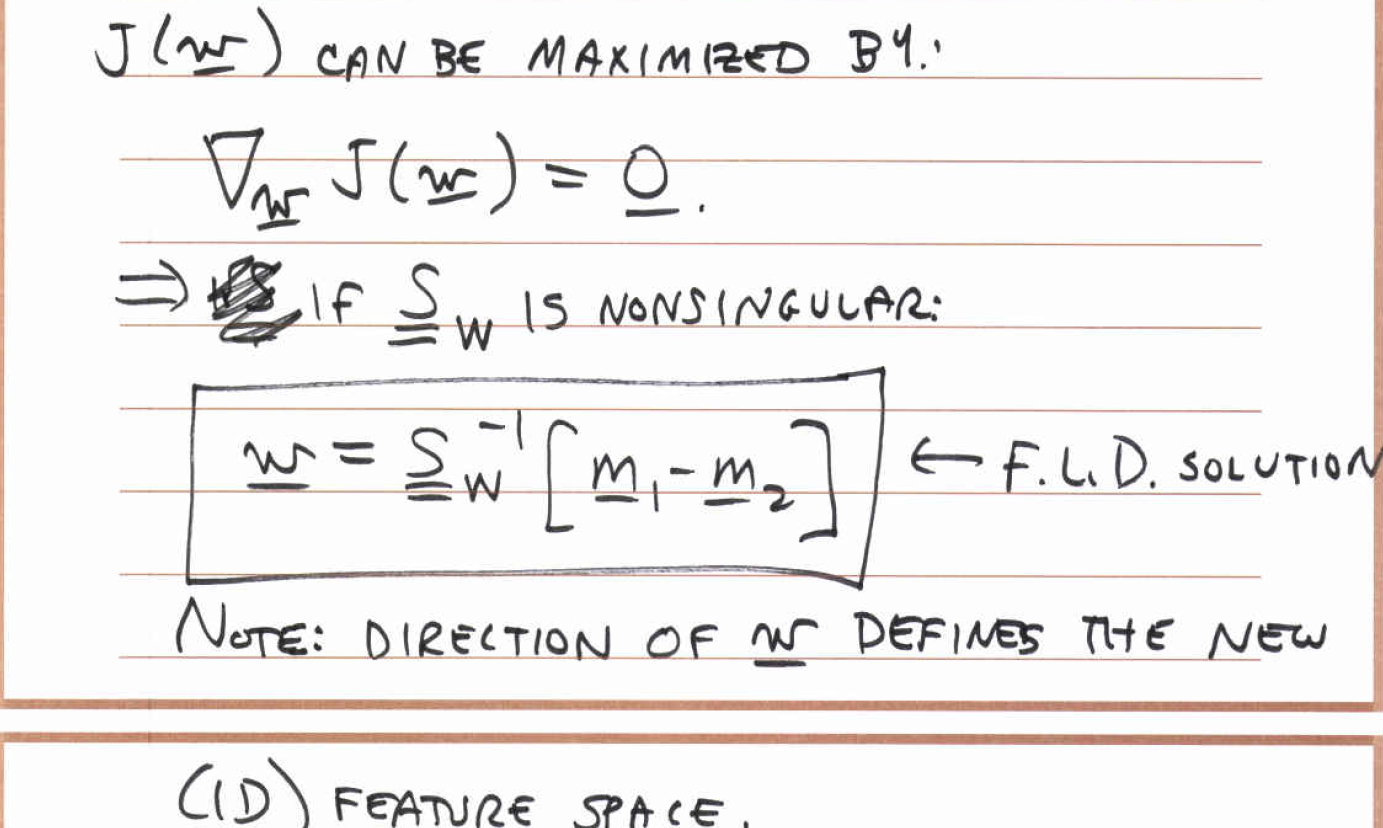 J(w̲) CAN BE MAXIMIZED BY:
∇_w̲ J(w̲) = 0̲.
⇒ IF S̳_W IS NONSINGULAR:
w̲ = S̳_W^-1 [m̲_1 - m̲_2] ← F.L.D. SOLUTION
NOTE: DIRECTION OF w̲ DEFINES THE NEW
(1D) FEATURE SPACE.